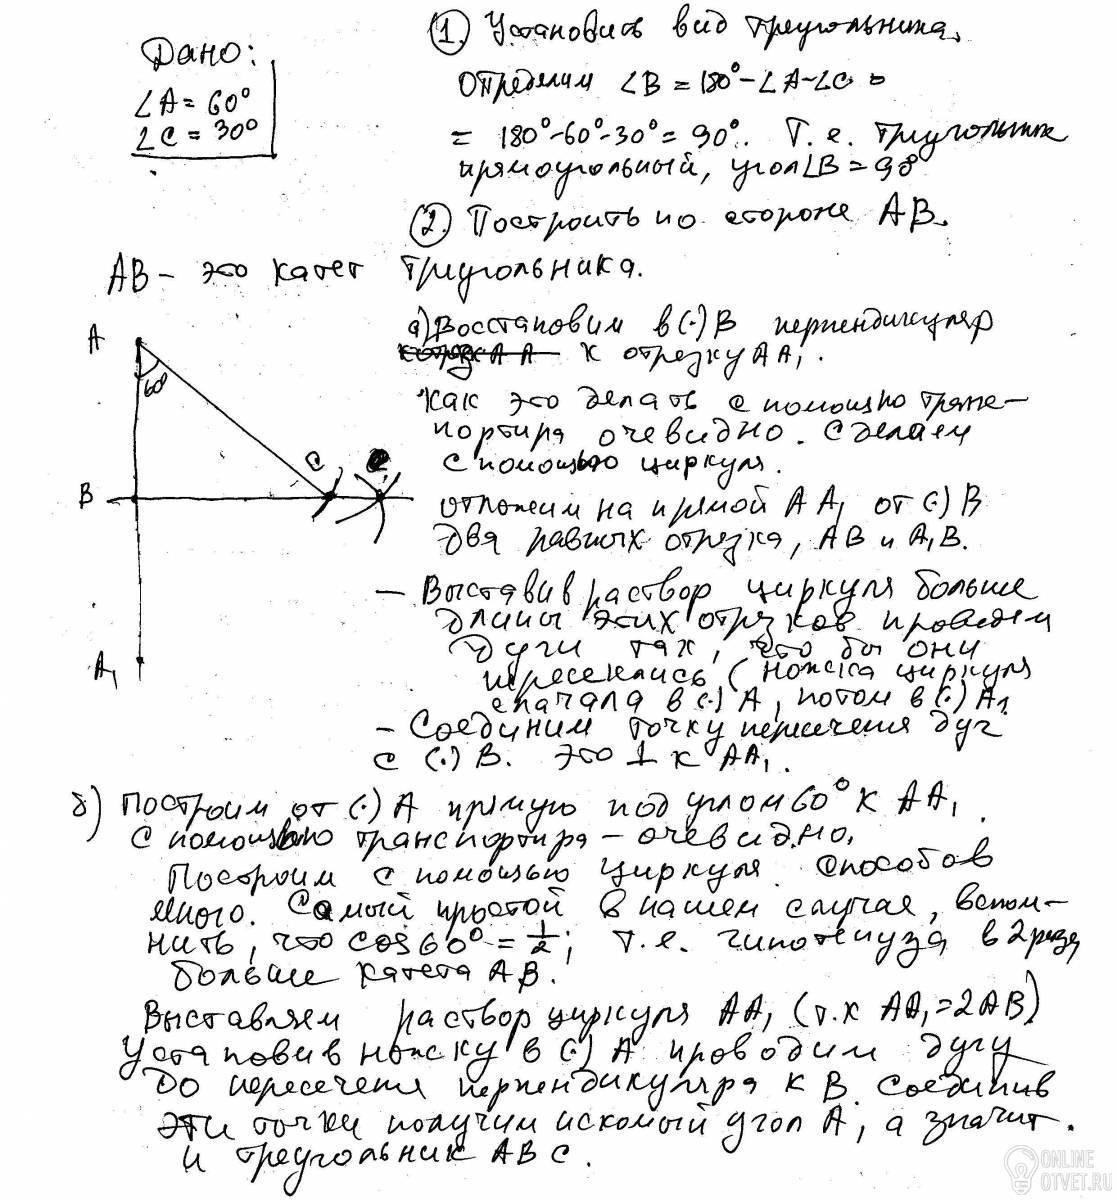 Дано:
∠A = 60°
∠C = 30°
1. Установить вид треугольника.
Определим ∠B = 180° - ∠A - ∠C =
= 180° - 60° - 30° = 90°. Т.е. треугольник
прямоугольный, угол ∠B = 90°
2. Построить по стороне AB.
AB – это катет треугольника.
а) Восстановим в (·) B перпендикуляр
к отрезку AA₁.
Как это делать с помощью транс-
портира очевидно. Сделаем
с помощью циркуля.
отложим на прямой AA₁ от (·) B
два равных отрезка, AB и A₁B.
– Выставив раствор циркуля больше
длины этих отрезков проведем
дуги так, что бы они
пересеклись (ножка циркуля
сначала в (·) A, потом в (·) A₁
– Соединим точку пересечения дуг
с (·) B. это ⊥ к AA₁.
A
60°
C
B
A₁
б) Построим от (·) A прямую под углом 60° к AA₁.
с помощью транспортира – очевидно.
Построим с помощью циркуля. Способов
много. Самый простой в нашем случае, вспом-
нить, что cos 60° = 1/2; т.е. гипотенуза в 2 раза
больше катета AB.
Выставляем раствор циркуля AA₁ (т.к AA₁ = 2AB)
Установив ножку в (·) A проводим дугу
до пересечения перпендикуляра к B. Соединив
эти точки получим искомый угол A, а значит.
и треугольник ABC.
ONLINE
OTVET.RU